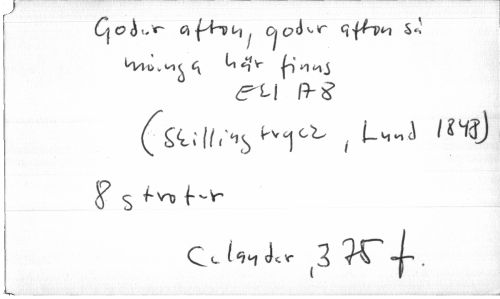 Goder afton, goder afton så
många här finns
E21 A8
(Skillingtryck, Lund 1848)
8 strofer
Celander, 375 f.